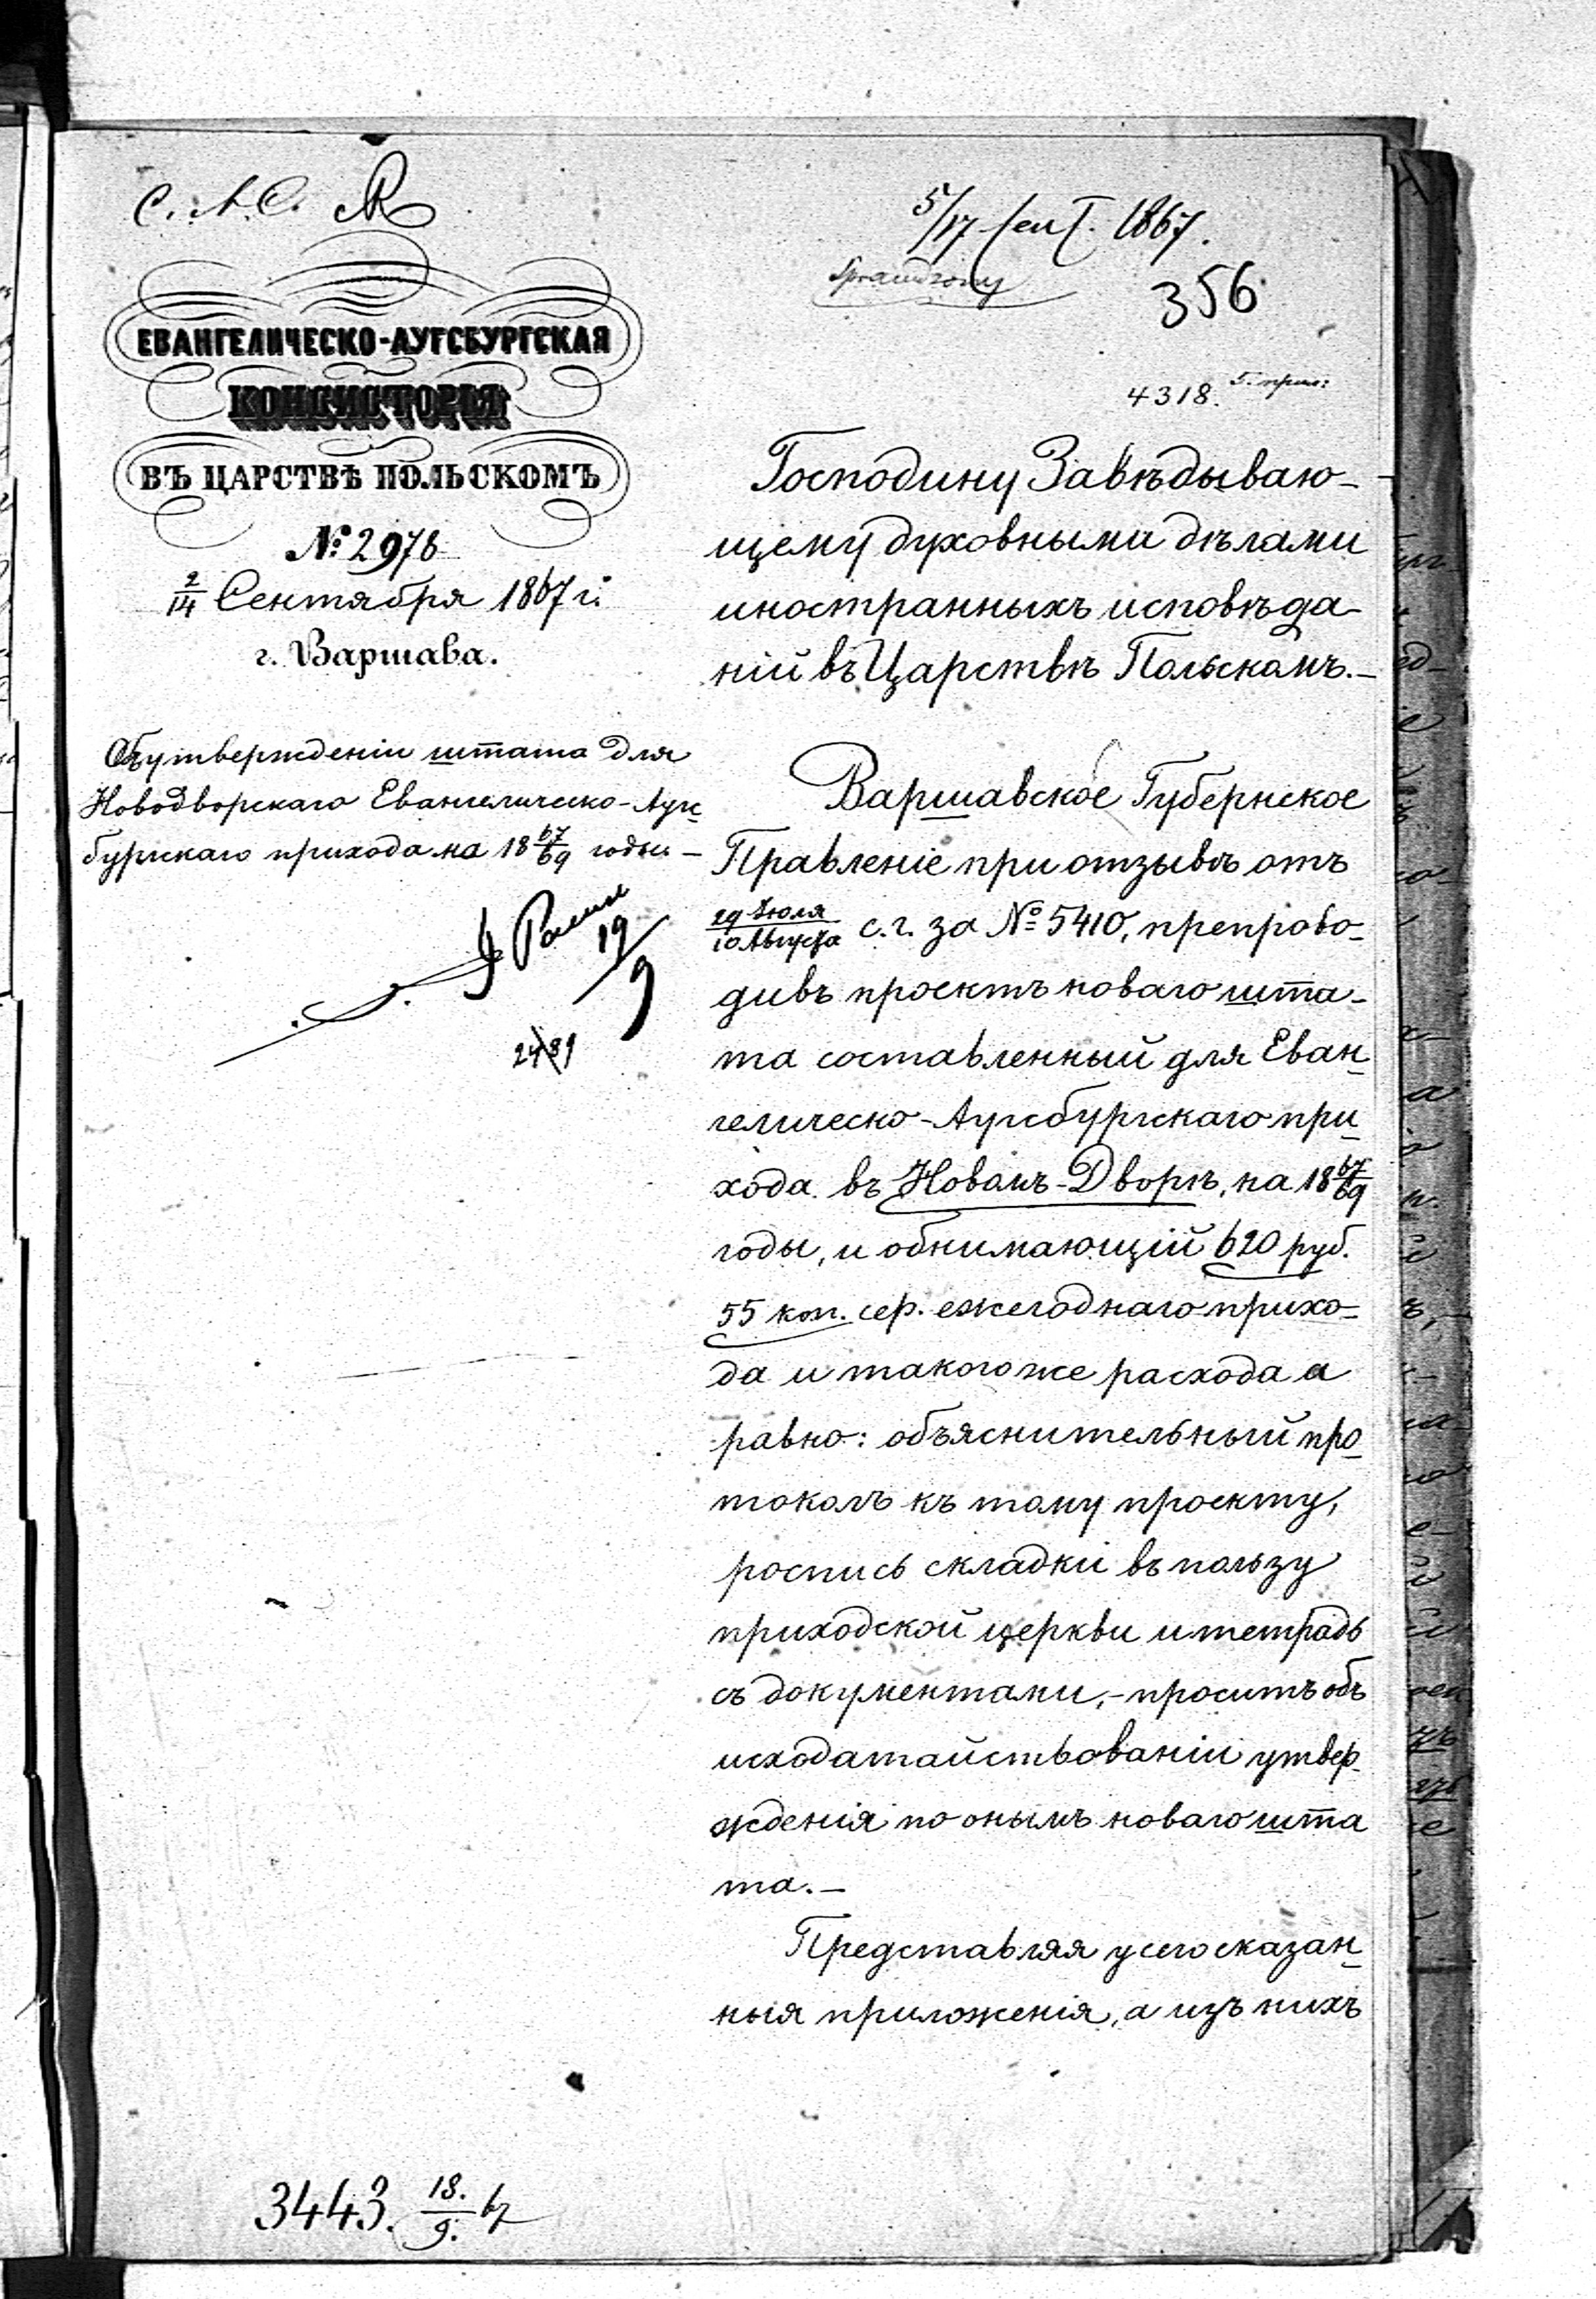 С. А. С.
ЕВАНГЕЛИЧЕСКО-АУГСБУРГСКАЯ
КОНСИСТОРІЯ
ВЪ ЦАРСТВѢ ПОЛЬСКОМЪ
№ 2978
2/14 Сентября 1867 г.
г. Варшава.
Объ утвержденіи штата для
Новодворскаго Евангелическо-Аугс
бургскаго прихода на 18 67/69 годы. —
19/9
5/17 Сент. 1867.
Sprawdzony
356
4318. 5. прил:
Господину Завѣдываю-
щему духовными дѣлами
иностранныхъ исповѣда-
ній въ Царствѣ Польскомъ. —
Варшавское Губернское
Правленіе при отзывѣ отъ
29 Іюля/10 Августа с. г. за № 5410, препрово-
дивъ проектъ новаго шта-
та составленный для Еван
гелическо-Аугсбургскаго при
хода въ Новомъ-Дворѣ, на 18 67/69
годы, и обнимающій 620 руб.
55 коп. сер. ежегоднаго прихо-
да и такого же расхода а
равно: объяснительный про
токолъ къ тому проекту,
роспись складки въ пользу
приходской церкви и тетрадь
съ документами, - проситъ объ
исходатайствованіи утвер-
жденія по онымъ новаго шта
та. —
Представляя у сего сказан
ныя приложенія, а изъ нихъ
3443. 18./9. 67